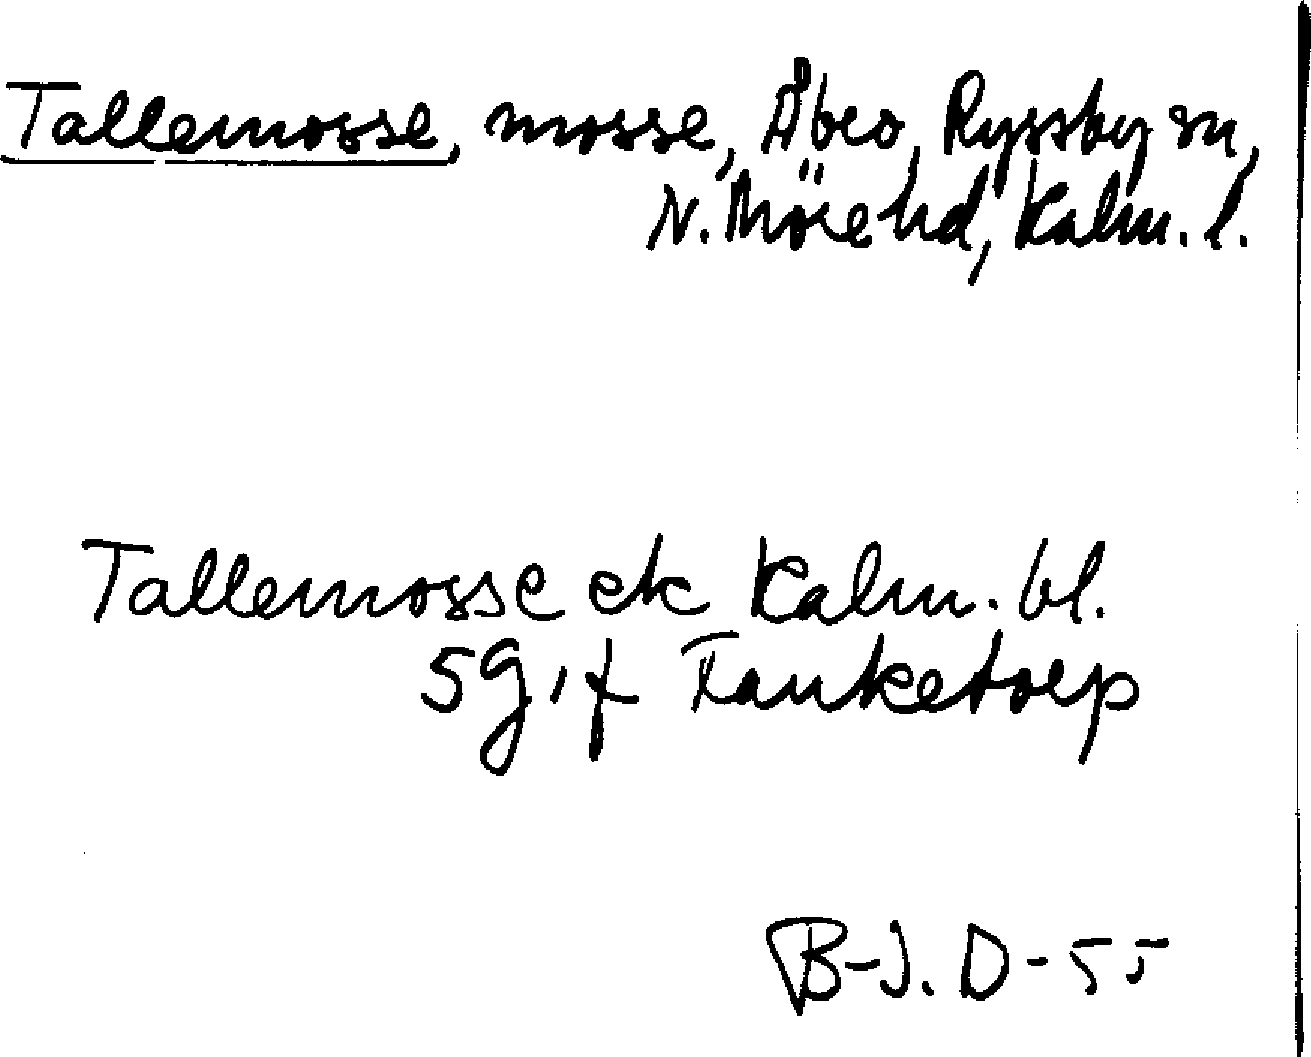 Tallemosse, mosse, Åbro, Ryssby sn,
N. Möre hd, Kalm. l.
Tallemosse ek Kalm. bl.
5g, f
B-J. D-55